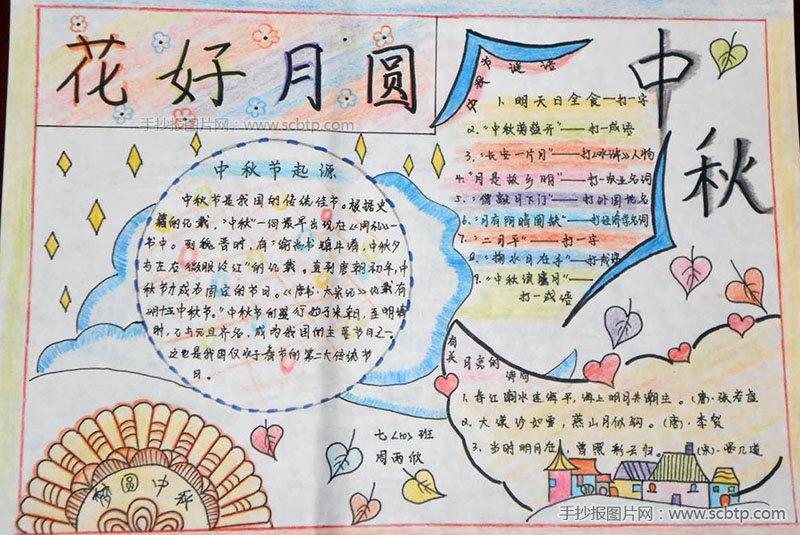 花好月圆
手抄报图片网：www.scbtp.com
中秋
中秋节起源
中秋节是我国的传统佳节。根据史
籍的记载，“中秋”一词最早出现在《周礼》一
书中。到魏晋时，有“谕尚书镇牛渚，中秋夕
与左右微服泛江”的记载。直到唐朝初年，中
秋节才成为固定的节日。《唐书·太宗记》记载有
“八月十五中秋节”。中秋节的盛行始于宋朝，至明清
时，已与元旦齐名，成为我国的主要节日之一。
这也是我国仅次于春节的第二大传统节
日。
中秋节谜语
1. 明天日全食——打一字
2.“中秋菊盛开”——打一成语
3.“长安一片月”——打《水浒》人物
4.“月是故乡明”——打一水业名词
5.“偶敲月下门”——打外国地名
6.“月有阴晴圆缺”——打经济学名词
7.“二月平”——打一字
8.“掬水月在手”——打一成语
9.“中秋度蜜月”——
打一成语
有关月亮的诗词
1. 春江潮水连海平，海上明月共潮生。（唐）张若虚
2. 大漠沙如雪，燕山月似钩。（唐）李贺
3. 当时明月在，曾照彩云归。（宋）晏几道
七<10>班
周两欣
情圆中秋
手抄报图片网：www.scbtp.com